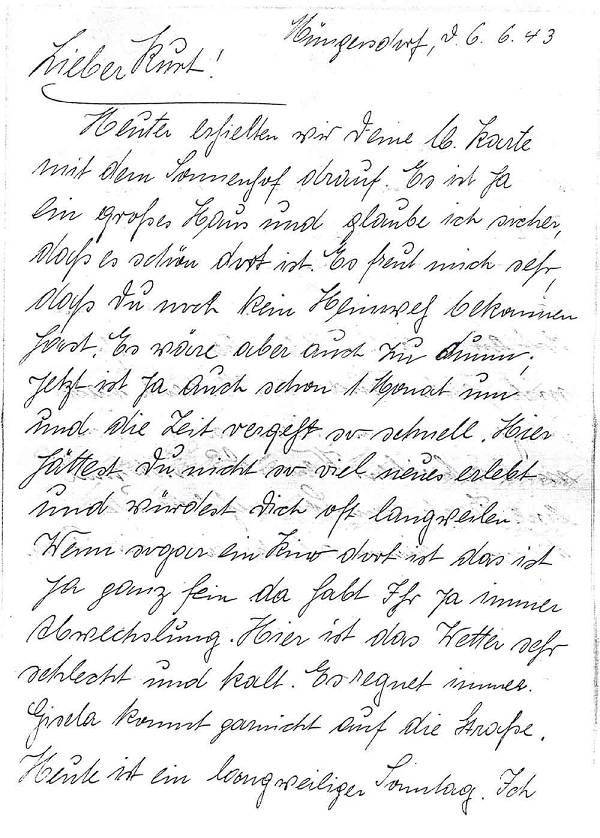 Müngersdorf, d. 6. 6. 43
Lieber Kurt!
Heuter erhielten wir Deine lb. Karte
mit dem Sonnenhof drauf. Es ist ja
ein großes Haus und glaube ich sicher,
daß es schön dort ist. Es freut mich sehr,
daß Du noch kein Heimweh bekommen
hast. Es wäre aber auch zu dumm,
jetzt ist ja auch schon 1 Monat um
und die Zeit vergeht so schnell. Hier
hättest Du nicht so viel neues erlebt
und würdest Dich oft langweilen.
Wenn sogar ein Kino dort ist das ist
ja ganz fein da habt Ihr ja immer
Abwechslung. Hier ist das Wetter sehr
schlecht und kalt. Es regnet immer.
Gisela kommt garnicht auf die Straße.
Heute ist ein langweiliger Sonntag. Ich